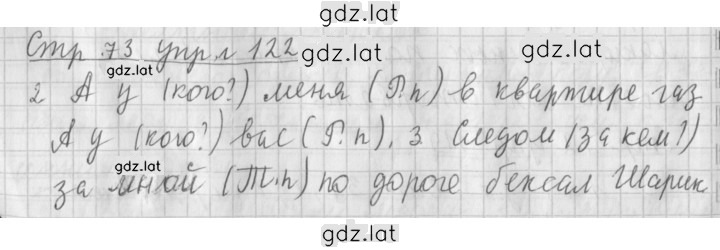 gdz.lat
Стр 73 упр. 122
gdz.lat
gdz.lat
gdz.lat
2 А у (кого?) меня (Р.п) в квартире газ
А у (кого?) вас (Р.п), 3. Следом (за кем?)
gdz.lat
за мной (Т.п) по дороге бексал Шарик
gdz.lat